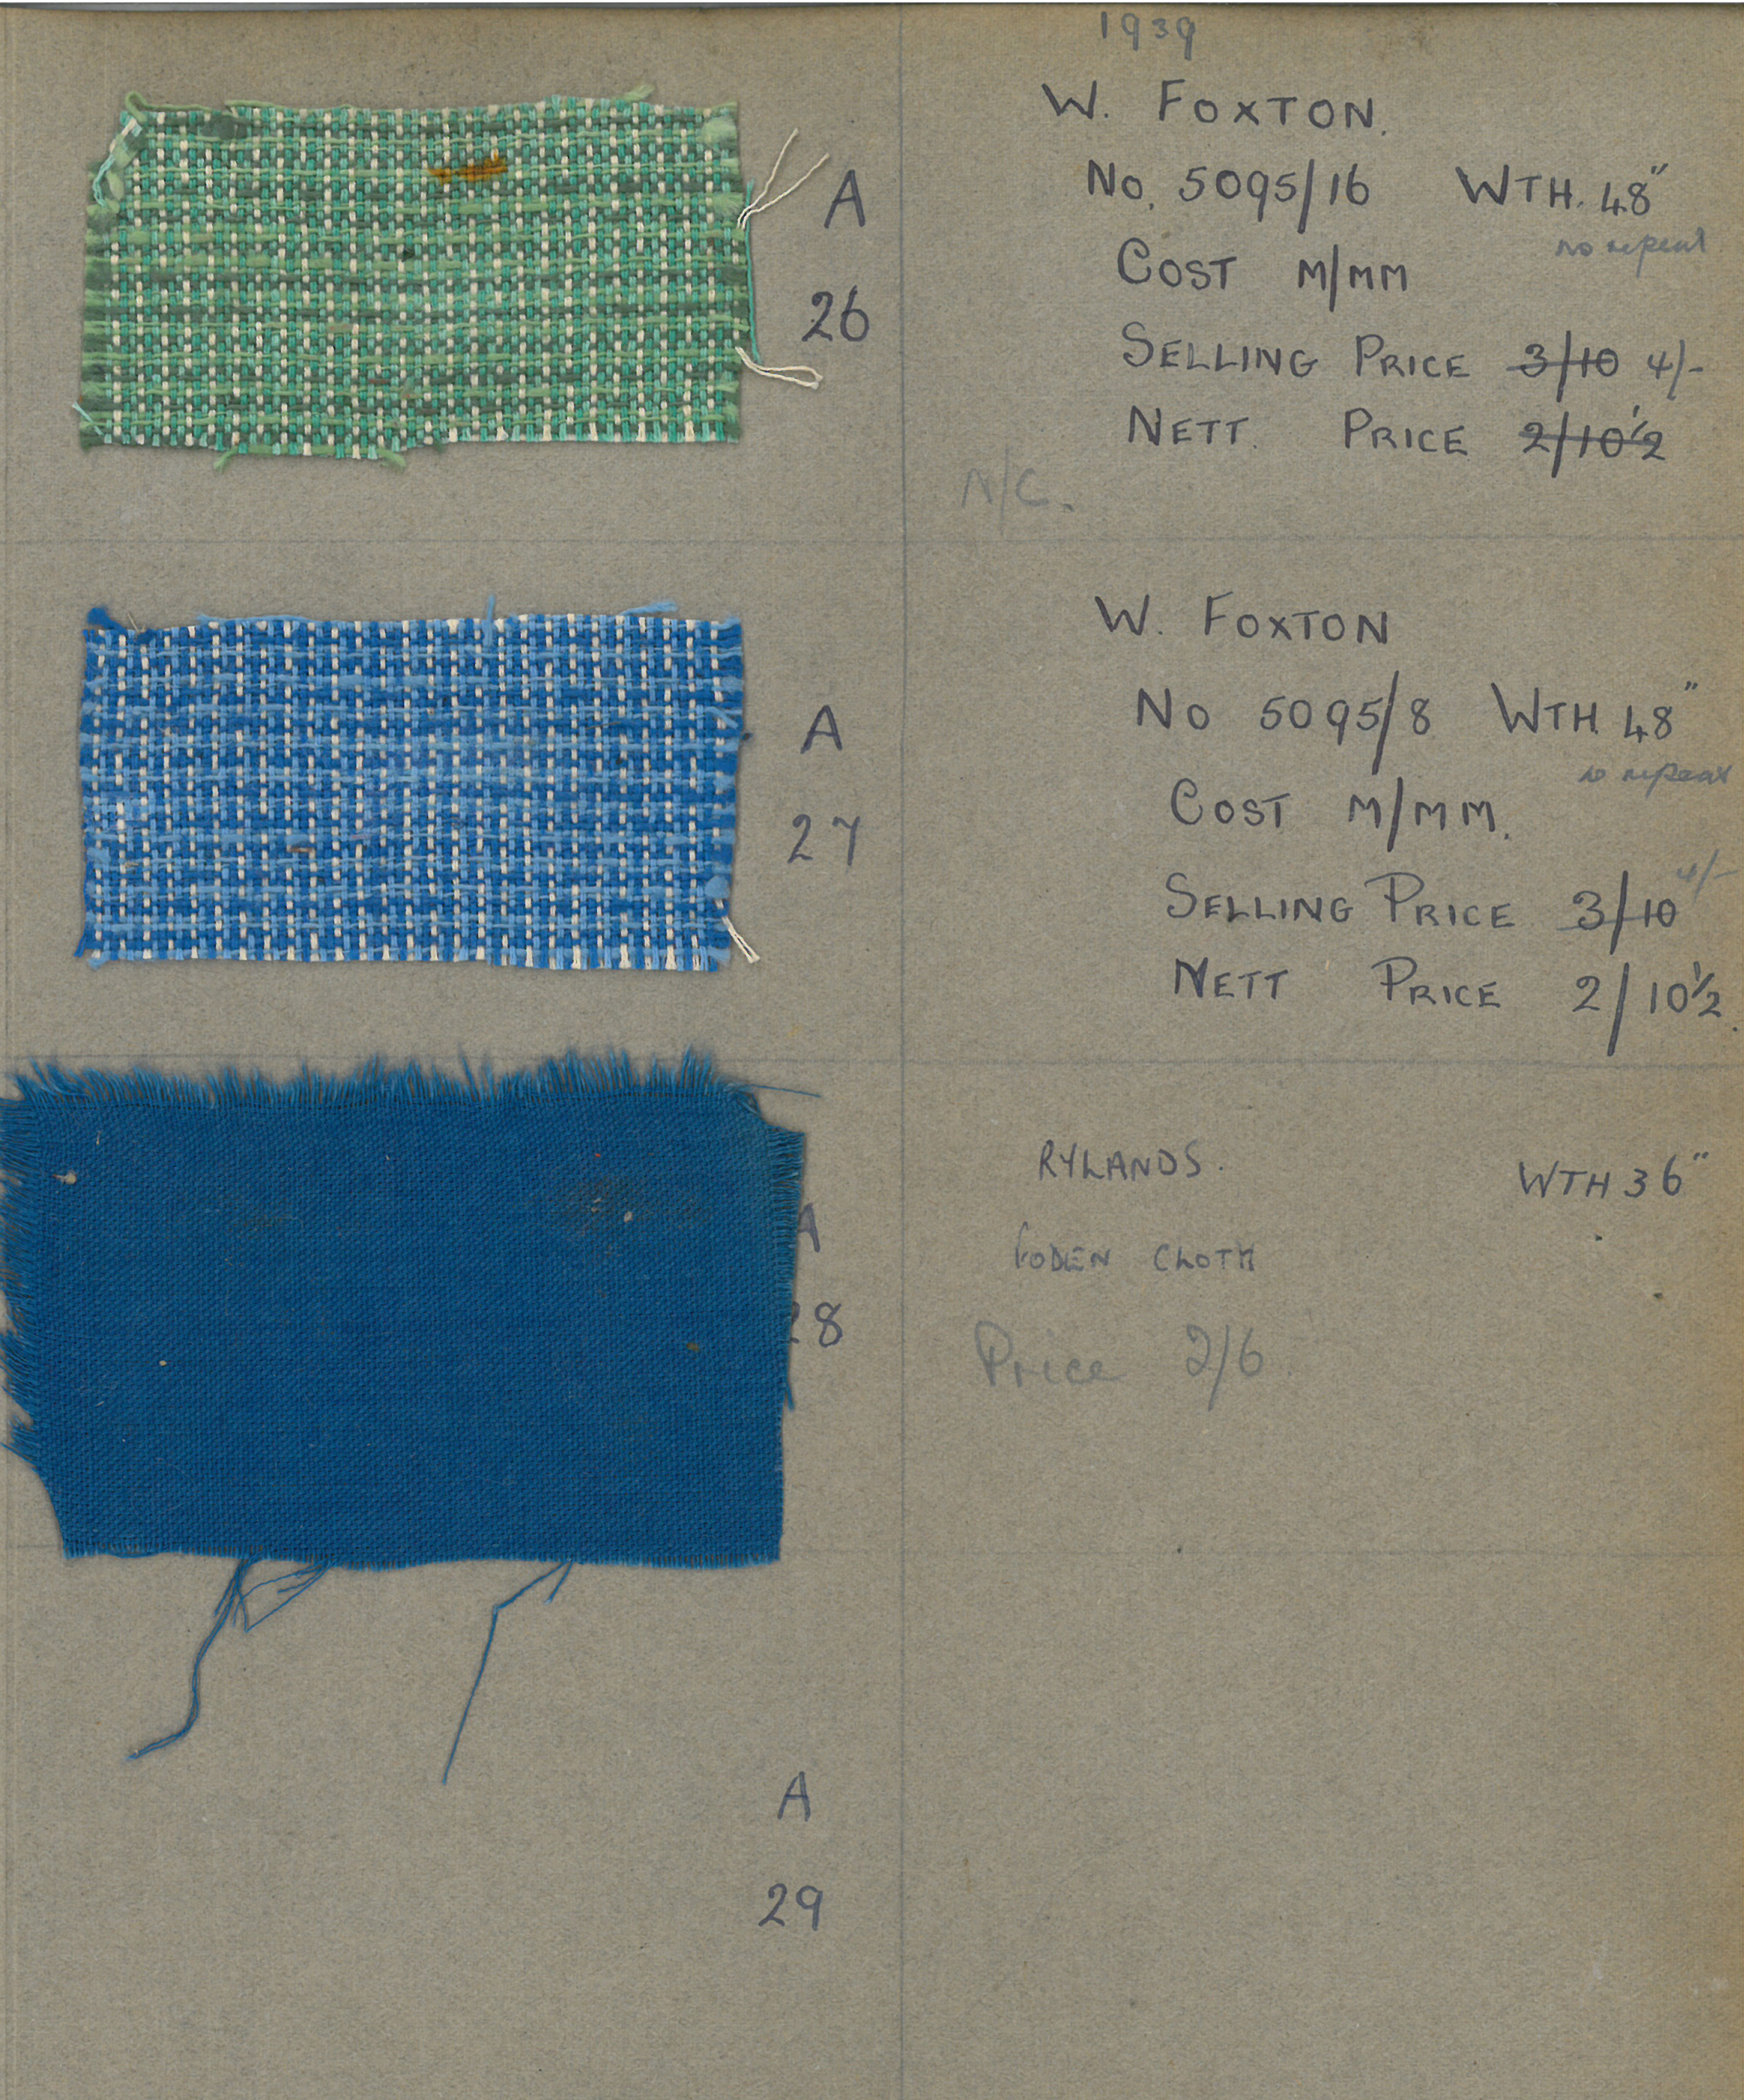 1939
W. FOXTON.
A
No. 5095/16 WTH. 48"
no repeat
COST M/MM
26
SELLING PRICE 3/10 4/-
NETT. PRICE 2/10½
N/C.
W. FOXTON
A
No 5095/8 WTH 48"
no repeat
COST M/MM.
27
SELLING PRICE 3/10 4/-
NETT PRICE 2/10½
RYLANDS. WTH 36"
A
FODEN CLOTH
28
Price 2/6
A
29